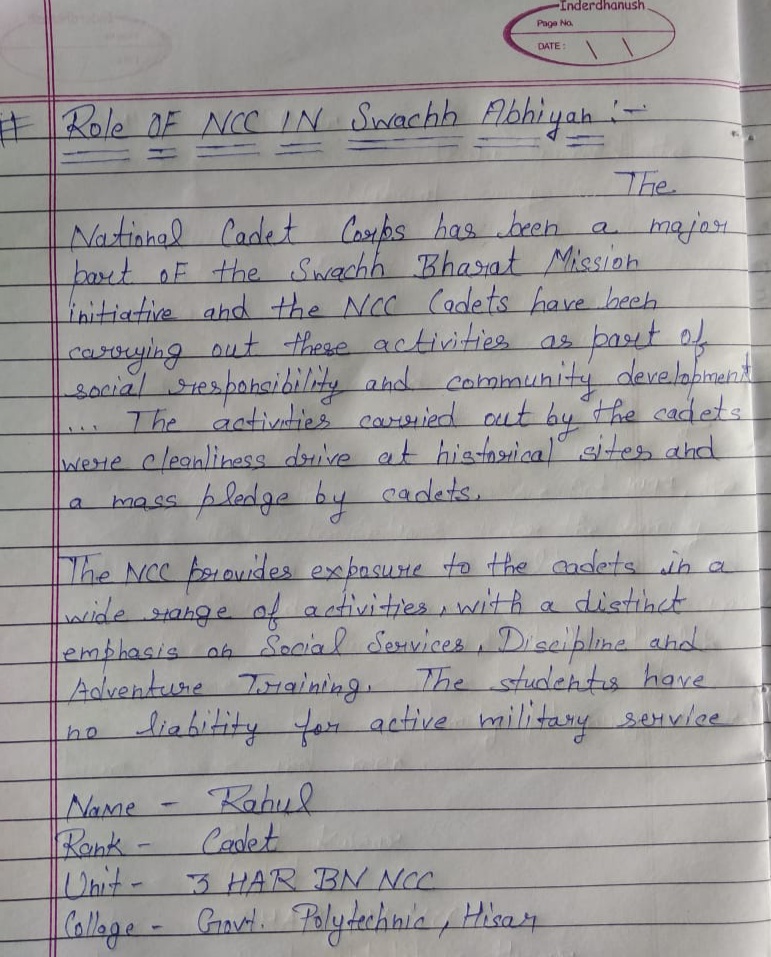 Inderdhanush
Page No.
DATE: \ \
# Role OF NCC IN Swachh Abhiyan :-
The
National Cadet Corps has been a major
part of the Swachh Bharat Mission
initiative and the NCC Cadets have been
carrying out these activities as part of
social responsibility and community development
... The activities carried out by the cadets
were cleanliness drive at historical sites and
a mass pledge by cadets.
The NCC provides exposure to the cadets in a
wide range of activities, with a distinct
emphasis on Social Services, Discipline and
Adventure Training. The students have
no liability for active military service
Name - Rahul
Rank - Cadet
Unit - 3 HAR BN NCC
Collage - Govt. Polytechnic, Hisar